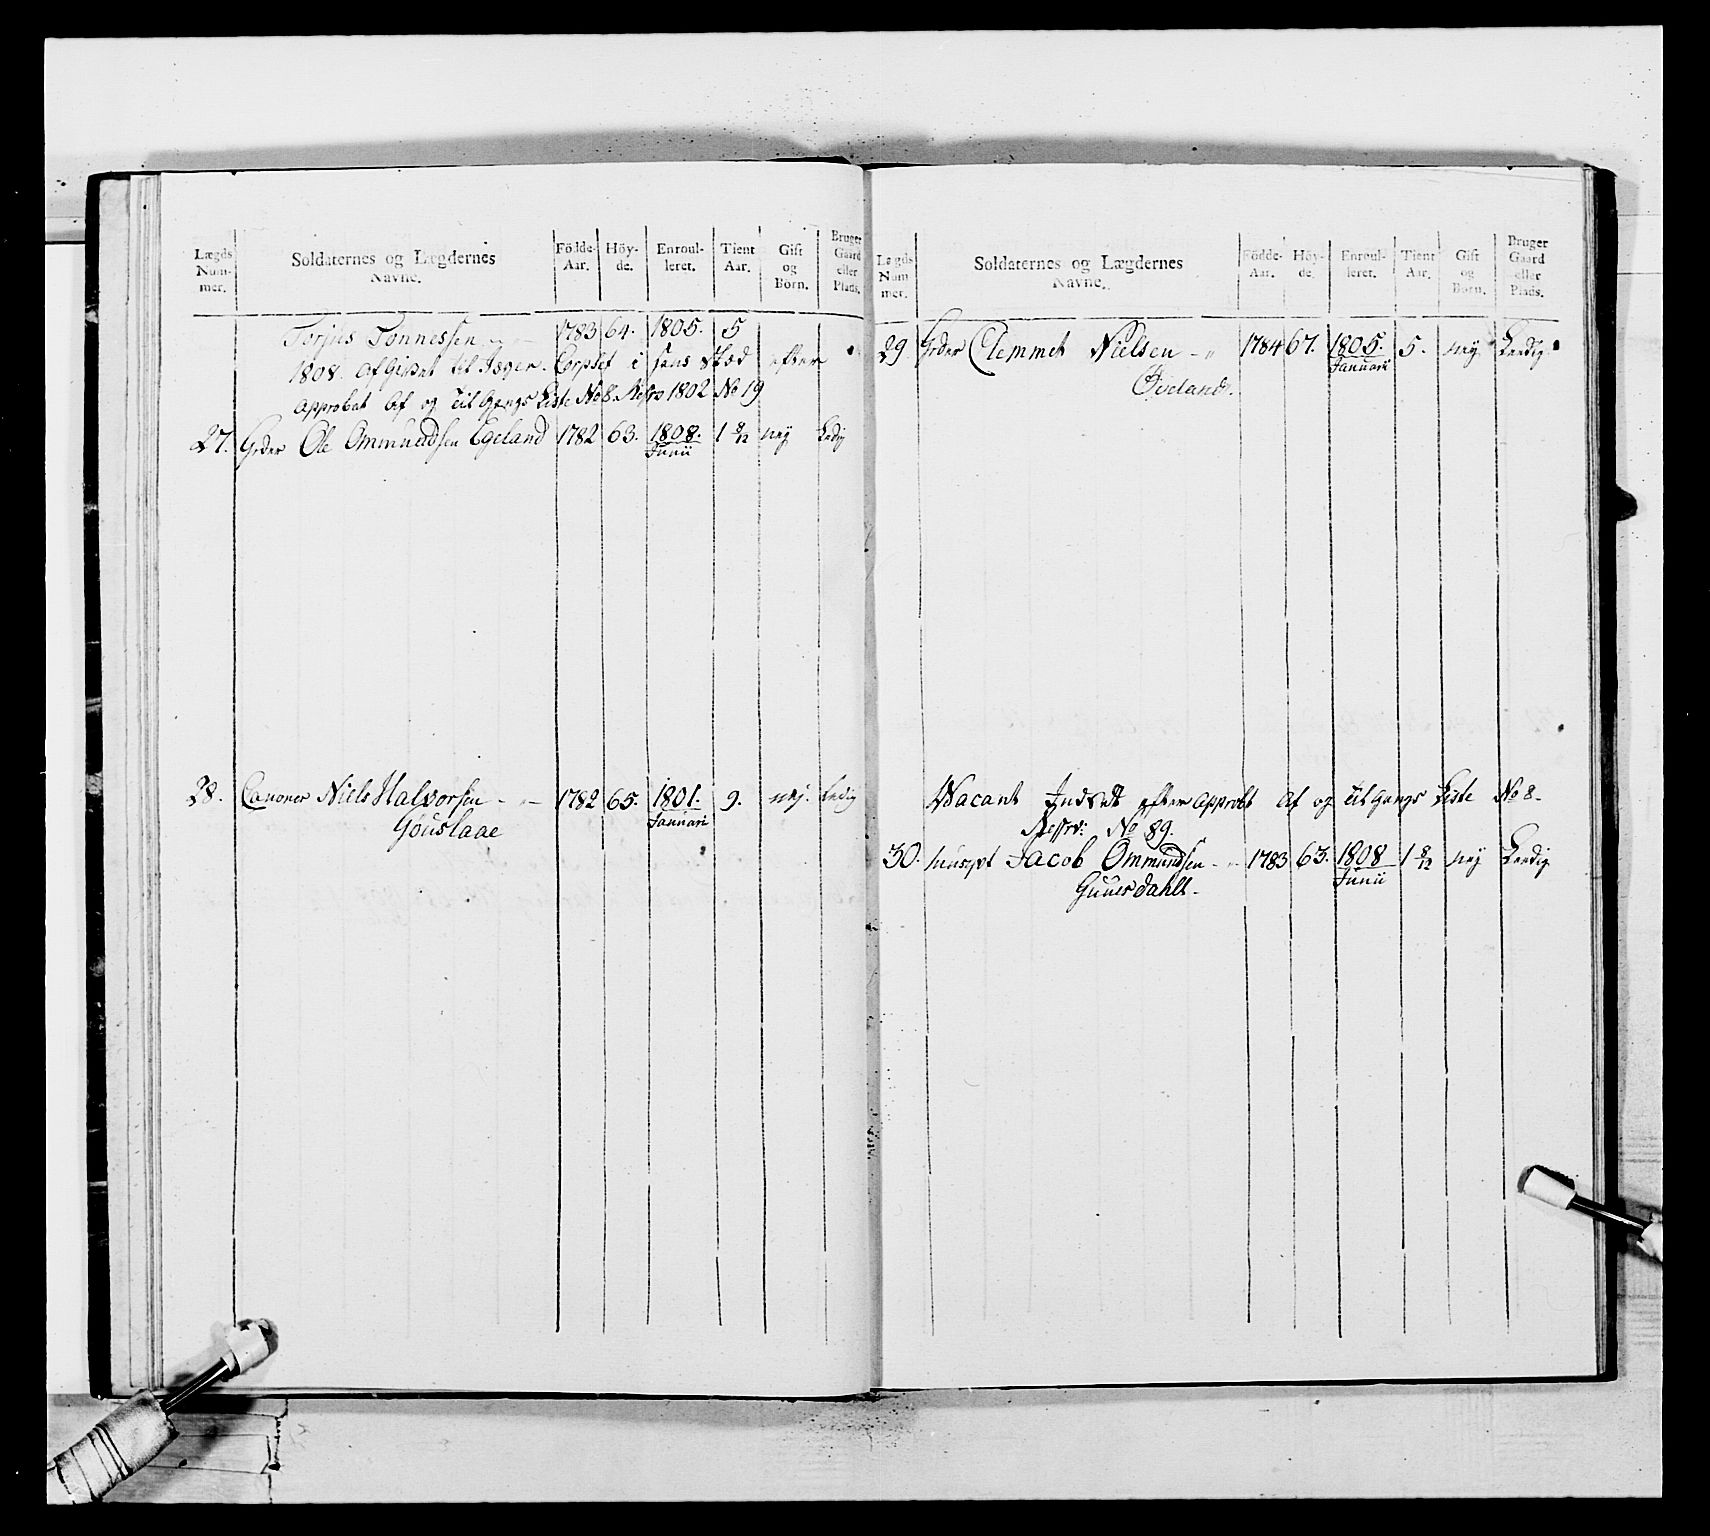 Lægds Num-mer. Soldaternes og Lægdernes Navne. Födde-Aar. Höy-de. Enroul-leret. Tient Aar. Gift og Börn. Bruger Gaard eller Plads.
Torjus Tonnessen 1783 64. 1805. 5
1808. Afgivet til Jæger. Corpset i hans Stæd efter
Approbat Af og til Gangs Liste No 8. 1802 No 19
27. Grder Ole Ommundsen Egeland 1782 63. 1808. 1 8/12 nej Ledig
Junii
28. Canoner Niels Halvorsen 1782 65. 1801. 9. nej. Ledig
Januari
Gouslaae
Lægds Num-mer. Soldaternes og Lægdernes Navne. Födde-Aar. Höy-de. Enroul-leret. Tient Aar. Gift og Börn. Bruger Gaard eller Plads.
29 Grder Clemmet Nielsen 1784 67. 1805. 5. nej Leedig
Januarii
Öveland.
Vacant Indsat efter Approbt Af og til Gangs Liste No 8.
No 89.
30. Musqt Jacob Ommundsen 1783 63. 1808 1 8/12 nej Leedig
Junii
Guuesdahll.